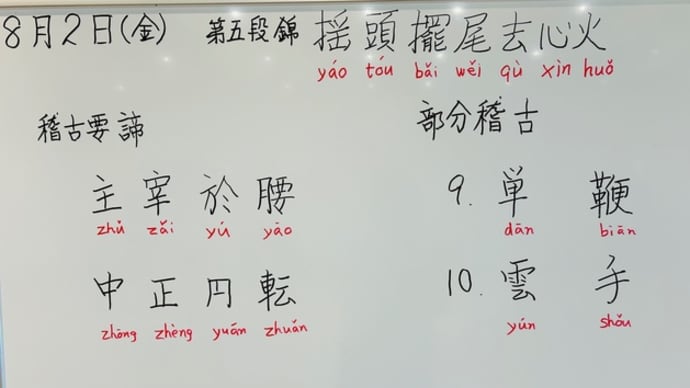 8月2日(金) 第五段錦 揺頭擺尾去心火
yáo tóu bǎi wěi qù xìn huǒ
稽古要諦
部分稽古
主宰於腰
zhǔ zǎi yú yāo
中正円転
zhōng zhèng yuán zhuǎn
9. 単鞭
dān biān
10. 雲手
yún shǒu